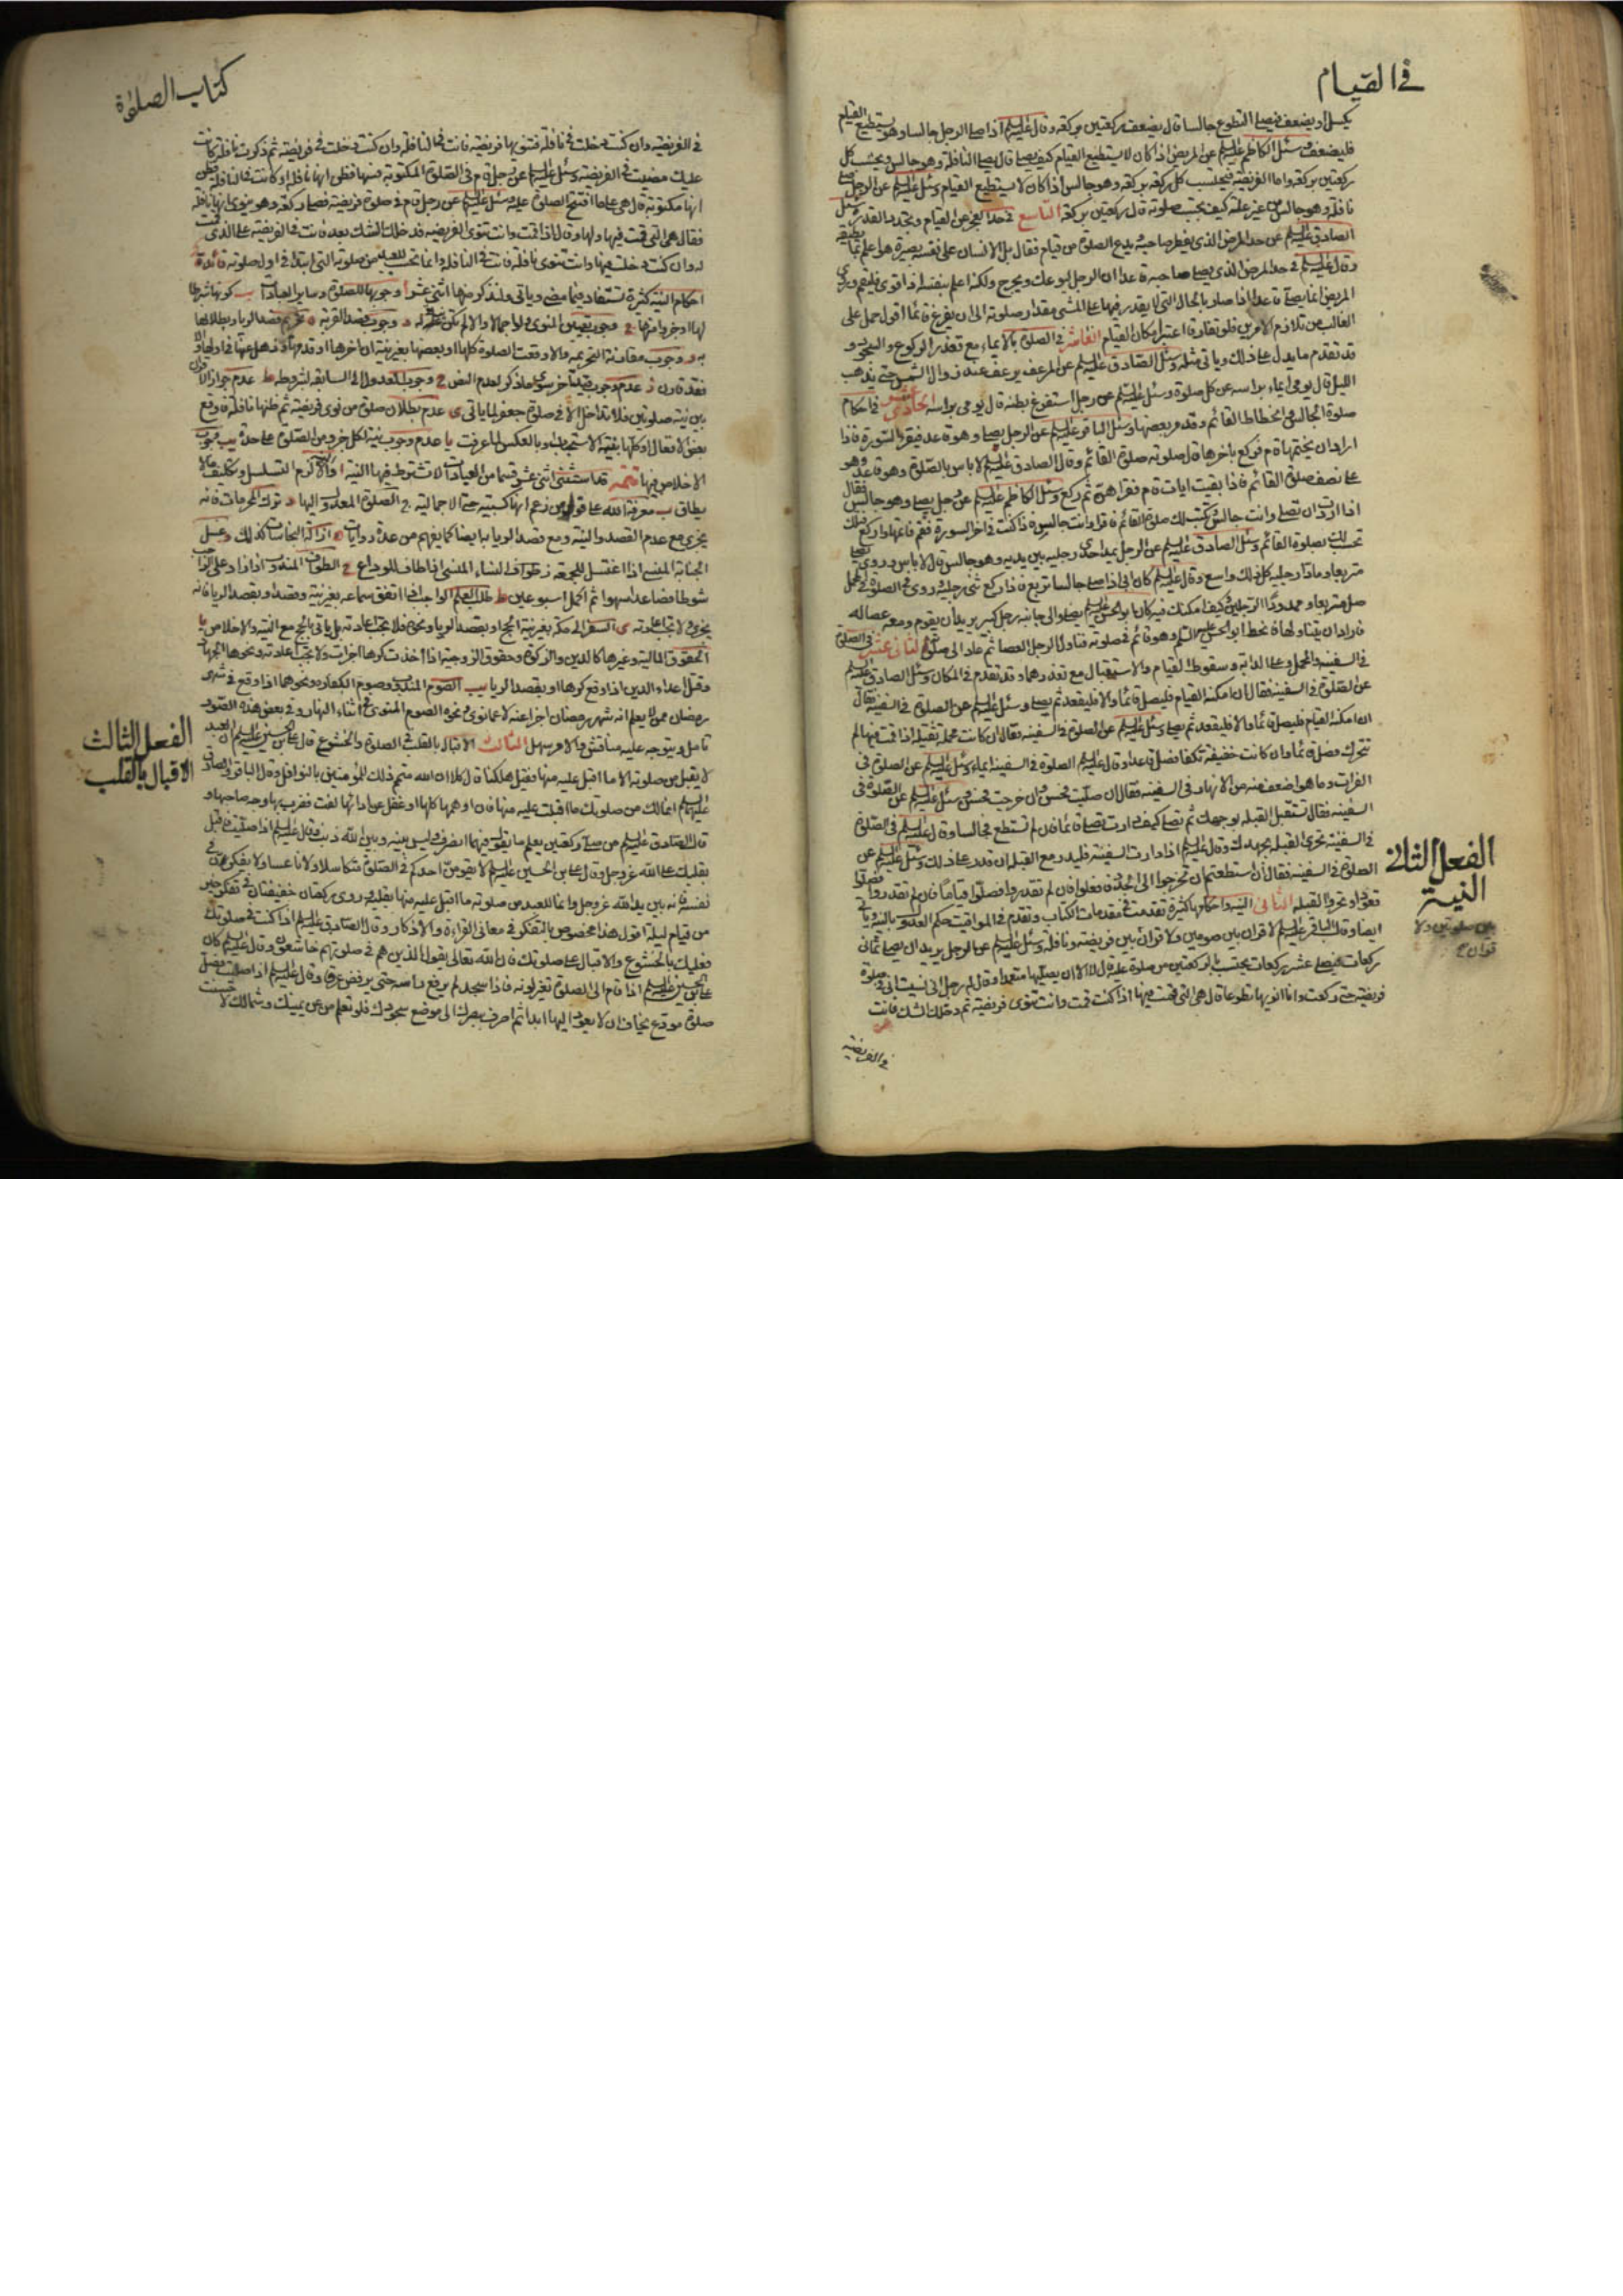 في القيام
يكسل او يضعف فيصلي التطوع جالسا قال يضعف ركعتين بركعة وقال عليه السلام اذا صلى الرجل جالسا وهو يستطيع القيام
فليضعف وسئل الكاظم عليه السلام عن المريض اذا كان لا يستطيع القيام كيف يصلي قال يصلي النافلة وهو جالس ويحتسب كل
ركعتين بركعة واما الفريضة فيحتسب كل ركعة بركعة وهو جالس اذا كان لا يستطيع القيام وسئل عليه السلام عن الرجل يصلي
نافلة وهو جالس من غير علة كيف يحتسب صلوته قال ركعتين بركعة التاسع في حد العجز عن القيام وتحديد القدر وسئل
الصادق عليه السلام عن حد المرض الذي يفطر صاحبه ويدع الصلوة من قيام فقال بل الانسان على نفسه بصيرة هو اعلم بما يطيقه
وقال عليه السلام في حد المرض الذي يصلي صاحبه قاعدا ان الرجل ليوعك ويحرج ولكنه اعلم بنفسه اذا قوي فليقم وروي
المريض انما يصلي قاعدا اذا صار بالحال التي لا يقدر فيها على المشي مقدار صلوته الى ان يفرغ قائما اقول حمل على
الغالب من تلازم الامرين فلو تفارقا اعتبر امكان القيام العاشر في الصلوة بالايماء مع تعذر الركوع والسجود و
قد تقدم ما يدل على ذلك وياتي مثله وسئل الصادق عليه السلام عن المرعف يرعف عنه زوال الشمس حتى يذهب
الليل قال يومي ايماء براسه عن كل صلوة وسئل عليه السلام عن رجل استفرغ بطنه قال يومي براسه الحادي عشر في احكام
صلوة الجالس
ارادان يختمها قام فركع باخرها قال صلوته صلوة القائم وقال الصادق عليه السلام لا باس بالصلوة وهو قاعد وهو
على نصف صلوة القائم فاذا بقيت ايات قام فقراهن ثم ركع وسئل الكاظم عليه السلام عن رجل يصلي وهو جالس فقال
اذا اردت ان تصلي وانت جالس ويكتب لك صلوة القائم فاقرا وانت جالس فاذا كنت في اخر السورة فقم فاتمها واركع فتلك
تحسب لك بصلوة القائم وسئل الصادق عليه السلام عن الرجل يمد احدى رجليه بين يديه وهو جالس قال لا باس وروي يصلي
متربعا ومادا رجليه كل ذلك واسع وقال عليه السلام كان ابي اذا صلى جالسا تربع فاذا ركع ثنى رجليه وروي في الصلوة في المحمل
صل متربعا وممدود الرجلين وكيف امكنك وكان ابو الحسن عليه السلام يصلي والى جانبه رجل كبير يريد ان يقوم ومعه عصا له
فاراد ان يتناولها فانحط ابو الحسن عليه السلام وهو قائم في صلوته فناول الرجل العصا ثم عاد الى صلوته الثاني عشر في الصلوة
في السفينة والمحمل وعلى الدابة وسقوط القيام والاستقبال مع تعذرهما وقد تقدم في المكان وسئل الصادق عليه السلام
عن الصلوة في السفينة فقال ان امكنه القيام فليصل قائما والا فليقعد ثم يصلي وسئل عليه السلام عن الصلوة في السفينة فقال
ان امكنه القيام فليصل قائما والا فليقعد ثم يصلي وسئل عليه السلام عن الصلوة في السفينة فقال ان كانت محملة ثقيلة اذا قمت فيها لم
تتحرك فصل قائما وان كانت خفيفة تكفا فصل قاعدا وقال عليه السلام الصلوة في السفينة ايماء وسئل عليه السلام عن الصلوة في
الفرات وما هو اضعف منه من الانهار في السفينة فقال ان صليت فحسن وان خرجت فحسن وسئل عليه السلام عن الصلوة في
السفينة فقال تستقبل القبلة بوجهك ثم تصلي كيف دارت تصلي قائما فان لم تستطع فجالسا وقال عليه السلام في الصلوة
في السفينة تحرى القبلة بجهدك وقال عليه السلام اذا دارت السفينة فليدر مع القبلة ان قدر على ذلك وسئل عليه السلام عن
الصلوة في السفينة فقال ان استطعتم ان تخرجوا الى الجدد فافعلوا فان لم تقدروا فصلوا قياما فان لم تقدروا فصلوا
قعودا وتحروا القبلة الثاني النية واحكامها كثيرة تقدمت في مقدمات الكتاب وتقدم في المواقيت حكم العدول بالنية وياتي
ايضا وقال الباقر عليه السلام لا قران بين صومين ولا قران بين فريضة ونافلة وسئل عليه السلام عن الرجل يريد ان يصلي ثماني
ركعات فيصلي عشر ركعات يحتسب بالركعتين من صلوة عليه قال لا الا ان يصليها متعمدا وقال له رجل اني نسيت اني في صلوة
فريضة حتى ركعت وانا انويها تطوعا قال هي التي قمت فيها اذا كنت قمت وانت تنوي فريضة ثم دخلك الشك فانت
في الفريضة
الفعل الثاني
النية
بين صلوتين ولا
قران
كتاب الصلوة
في الفريضة وان كنت دخلت في نافلة فتنويها فريضة فانت في النافلة وان كنت دخلت في فريضة ثم ذكرت نافلة كانت
عليك مضيت في الفريضة وسئل عليه السلام عن رجل قام في الصلوة المكتوبة فسها فظن انها نافلة او كانت في النافلة فظن
انها مكتوبة قال هي على ما افتتح الصلوة عليه وسئل عليه السلام عن رجل قام في صلوة فريضة فصلى ركعة وهو ينوي انها نافلة
فقال هي التي قمت فيها ولها وقال اذا قمت وانت تنوي الفريضة فدخلك الشك بعد فانت في الفريضة على الذي قمت
له وان كنت دخلت فيها وانت تنوي نافلة فانت في النافلة وانما تحسب للعبد من صلوته التي ابتدا في اول صلوته فائدة
احكام النية كثيرة تستفاد مما مضى وياتي ولنذكر منها اثنى عشر ا وجوبها للصلوة وساير العبادات ب كونها شرطا
لها او جزوا منها ج وجوب تعيين المنوي ولو اجمالا والا لم تكن نية له د وجوب قصد القربة ه تحريم قصد الريا وبطلانها
به و وجوب مقارنة التحريمة والا وقعت الصلوة كلها او بعضها بغير نية ان اخرها او قدمها وذهل عنها في اولها والا
عدم وجوب ح وجوب العدول الى السابقة بشروطه ط عدم جواز القران
بين نية صلوتين فلا تداخل الا في صلوة جعفر لما ياتي ي عدم بطلان صلوة من نوى فريضة ثم ظنها نافلة فاوقع
بعض الافعال او كلها بنية الاستحباب وبالعكس لما عرفت يا عدم وجوب نية لكل جزو من الصلوة على حدة يب وجوب
الاخلاص فيها تتمة قد استثني اثنى عشر قسما من العبادات لا تشترط فيها النية ا النية والا لزم التسلسل وتكليف ما لا
يطاق ب معرفة الله على قول من زعم انها كسبية حتى الاجمالية ج الصلوة المعدول اليها د ترك المحرمات فانه
يجزي مع عدم القصد والنية ومع قصد الريا بها ايضا كما يفهم من عدة روايات ه ازالة النجاسات كذلك و غسل
الجنابة المنسي اذا اغتسل للجمعة ز طواف النساء المنسي اذا طاف للوداع ح الطواف المندوب اذا زاد على الواجب
شوطا فصاعدا سهوا ثم اكمل اسبوعين ط طلب العلم الواجب اذا اتفق سماعه بغير نية وقصد او بقصد الريا فانه
يجزي ولا تجب اعادته ي السفر الى مكة بغير نية الحج او بقصد الريا ونحوه فلا تجب اعادته بل ياتي بالحج مع النية والاخلاص يا
الحقوق المالية وغيرها كالدين والزكوة وحقوق الزوجية اذا اخذت كرها اجزات ولا تجب اعادته ونحوها الجهاد
وقتل اعداء الدين اذا وقع كرها او بقصد الريا يب الصوم المندوب وصوم الكفارة ونحوهما اذا وقع في شهر
رمضان ممن لا يعلم انه شهر رمضان اجزا عنه لا عما نوى ونحوه الصوم المنوي في اثناء النهار وفي بعض هذه الصور
تامل ويتوجه عليه مناقشة والامر سهل الثالث الاقبال بالقلب في الصلوة والخشوع قال علي بن الحسين عليه السلام ان العبد
لا يقبل من صلوته الا ما اقبل عليه منها فقيل هلكنا قال كلا ان الله متمم ذلك للمؤمنين بالنوافل وقال الباقر والصادق
عليهما السلام انما لك من صلوتك ما اقبلت عليه منها فان اوهمها كلها او غفل عن ادائها لفت فضرب بها وجه صاحبها و
قال الصادق عليه السلام من صلى ركعتين يعلم ما يقول فيهما انصرف وليس بينه وبين الله ذنب وقال عليه السلام اذا صليت فاقبل
بقلبك على الله عز وجل وقال علي بن الحسين عليه السلام لا يقومن احدكم في الصلوة متكاسلا ولا ناعسا ولا يفكرن في
نفسه فانه بين يدي الله عز وجل وانما للعبد من صلوته ما اقبل عليه منها بقلبه وروي ركعتان خفيفتان في تفكر خير
من قيام ليلة اقول هذا مخصوص بالتفكر في معاني القراءة والاذكار وقال الصادق عليه السلام اذا كنت في صلوتك
فعليك بالخشوع والاقبال على صلوتك فان الله تعالى يقول الذين هم في صلوتهم خاشعون وقال عليه السلام كان
علي بن الحسين عليه السلام اذا قام الى الصلوة تغير لونه فاذا سجد لم يرفع راسه حتى يرفض عرقا وقال عليه السلام اذا صليت فصل
صلوة مودع يخاف ان لا يعود اليها ابدا ثم اصرف ببصرك الى موضع سجودك فلو تعلم من عن يمينك وشمالك لاحسنت
الفعل الثالث
الاقبال بالقلب